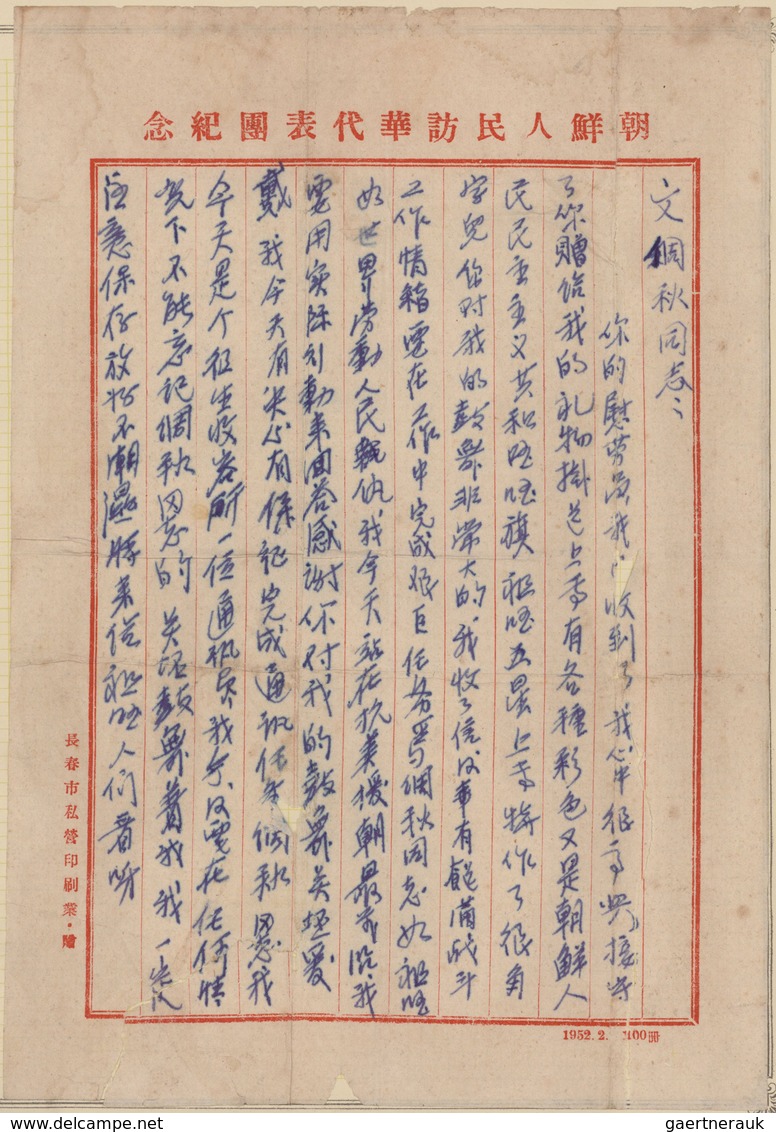 朝鮮人民訪華代表團紀念
文個秋同志：
你的慰勞品我已收到了我心中很高兴接与
了你贈给我的礼物掛芑上面有各種彩色又是朝鮮人
民民主主义共和国国旗祖国五星上面 作了很
字兒你对我的鼓舞非常大的我收了信后 有飽滿战斗
工作情緒要在工作中完成艰巨任务 個秋同志如祖国
如世界劳動人民 仇我今天站在抗美援朝最前沿我
要用实际行動来回答感謝你对我的鼓舞关 爱
戴我今天有决心有保证完成通讯任务個秋 我
今天是个衛生收容所一位通訊員我今后要在任何情
况下不能忘記個秋 的关 鼓舞着我我一定
注意保存放好不潮濕 来信祖国人们
長春市私营印刷業·贈
1952.2. 100冊
gaertnerauk